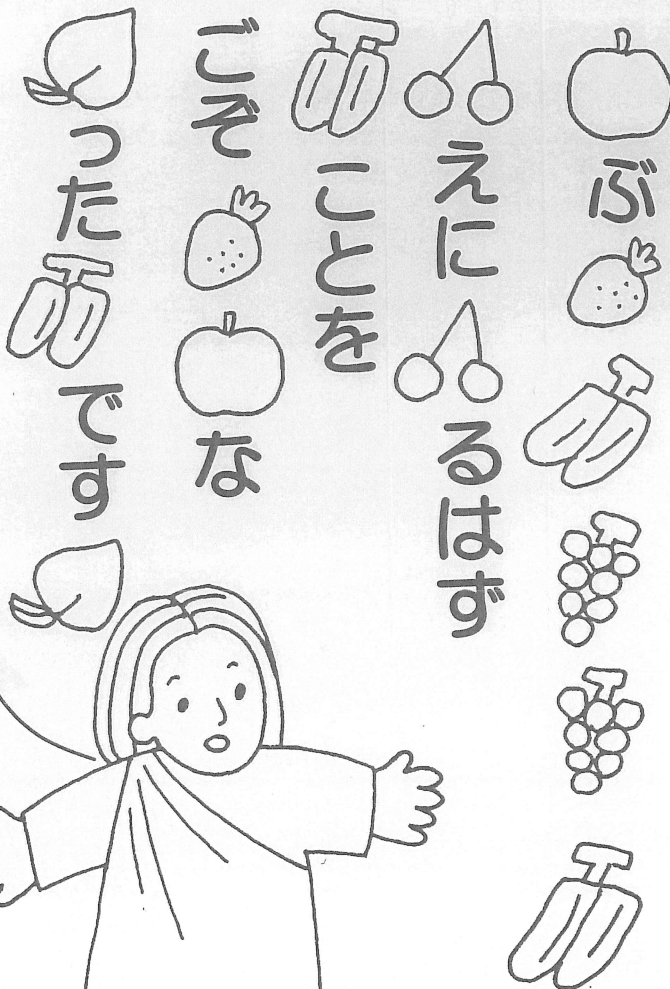 ぶ
えに るはず
ことを
ごぞ な
った です